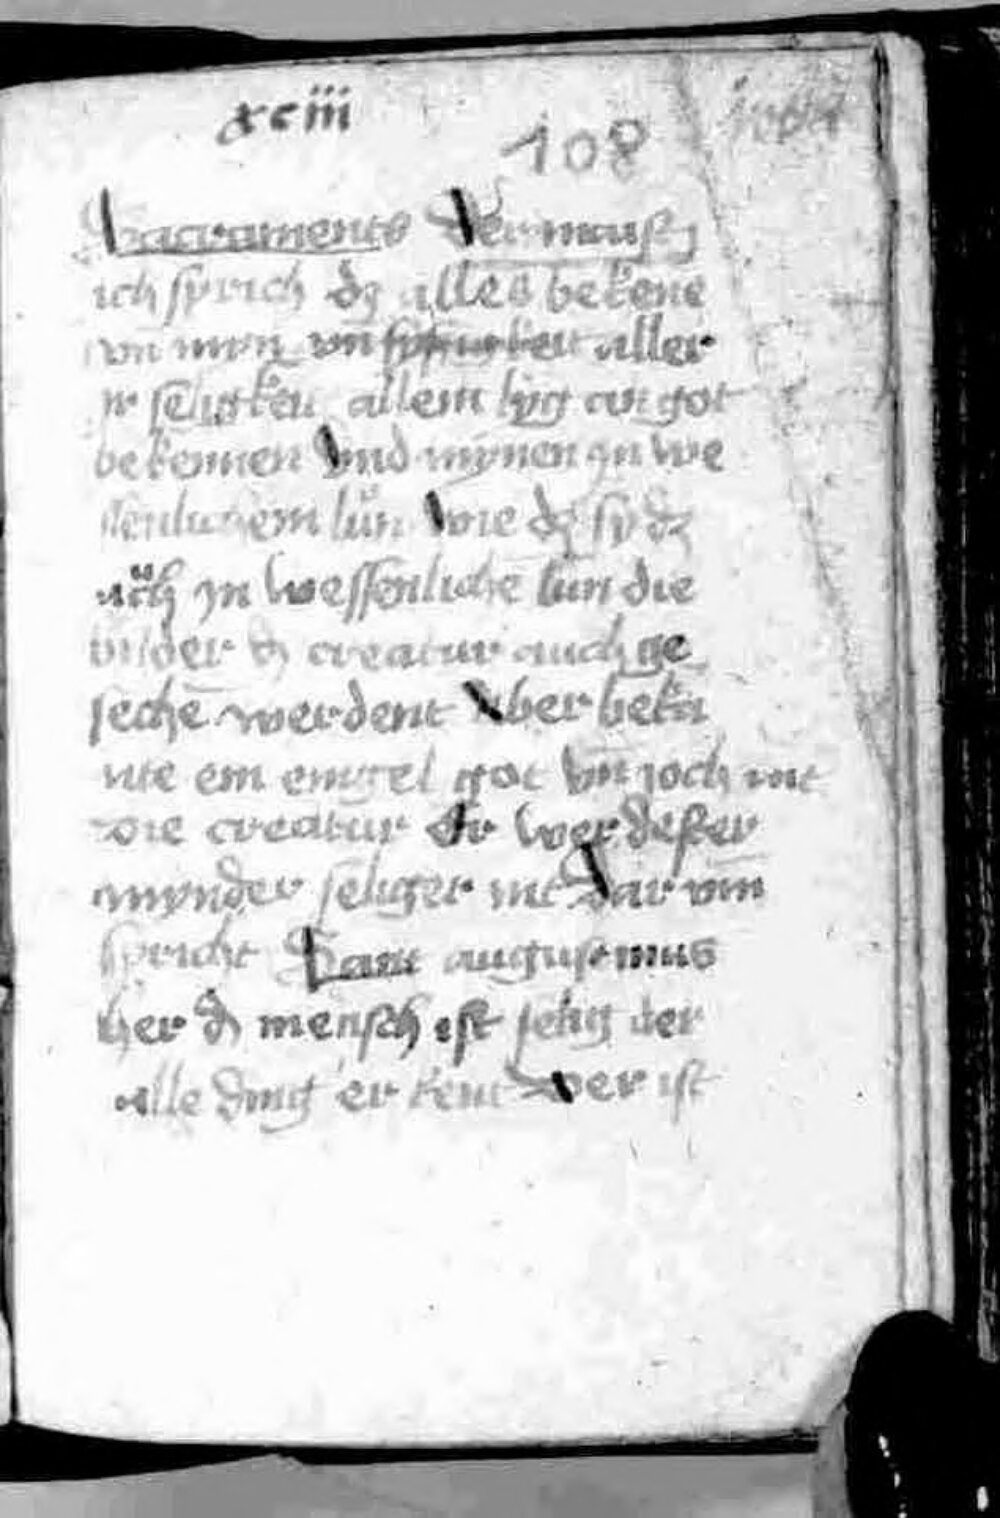 xciii
108
Sacraments Der maister
ich sprich dz alles bekene
vn myn vn aller
ir seligkeit allem lyg an got
bekennen Vnd mynen yn we
senlichem Wie dz sy dz
ych yn wessenliche die
vnder d creatur auch ge
seche werdent Aber bekn
nte ein engel got vn joch nit
die creatur Er wer dester
mynder seliger nit Dar vm
spricht Sant augustinus
her d mensch ist selig der
alle ding er kent Wer ist